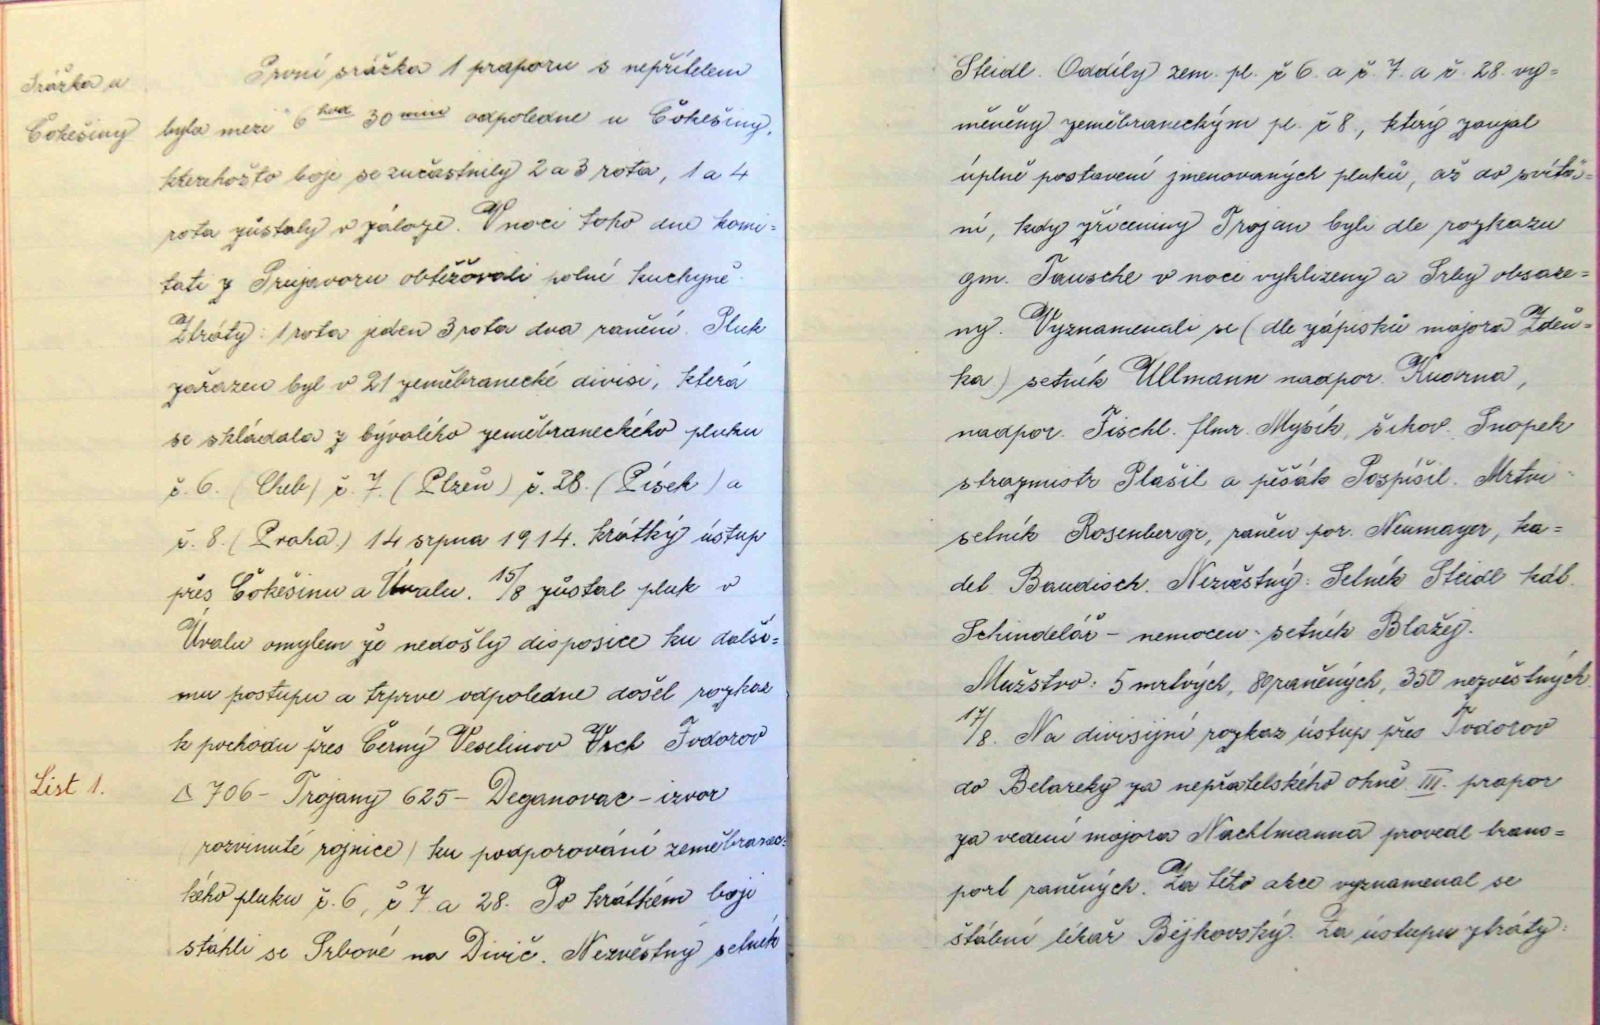 Srážka u
Čokešiny
První srážka 1 praporu s nepřítelem
byla mezi 6 hod 30 min odpoledne u Čokešiny,
kteréhožto boje se zúčastnily 2 a 3 rota, 1 a 4
rota zůstaly v záloze. V noci toho dne komi=
tati z obtěžovali polní kuchyně.
Ztráty: 1 rota jeden 3 rota dva ranění. Pluk
zařazen byl v 21 zeměbranecké divisi, která
se skládala z bývalého zeměbraneckého pluku
č. 6. (Cheb) č. 7. (Plzeň) č. 28. (Písek) a
č. 8. (Praha) 14 srpna 1914. krátký ústup
přes Čokešinu a Úvalu. 15/8 zůstal pluk v
Úvalu omylem že nedošly disposice ku dalši=
mu postupu a teprve odpoledne došel rozkaz
k pochodu přes Černý Veselinov Vrch Todorov
List 1.
△ 706 – Trojany 625 – Deganovac – izvor
(rozvinuté rojnice) ku podporování zeměbranec=
kého pluku č. 6, č 7 a 28. Po krátkém boji
stáhli se Srbové na Divič. Nezvěstný setník
Steidl. Oddíly zem. pl. č 6. a č. 7. a č. 28. vy=
měněny zeměbraneckým pl. č 8., který zaujal
úplně postavení jmenovaných pluků, až do svítá=
ní, kdy zříceniny Trojan byli dle rozkazu
gm. Pausche v noci vyklizeny a Srby obsaze=
ny. Vyznamenali se (dle zápisků majora Zdeň=
ka) setník Ullmann nadpor. Kuorna,
nadpor. Tischl. flmr. Mysík, šikov. Snopek
strazmistr Plašil a pěšák Pospíšil. Mrtvi
setník Rosenbergr, raněn por. Neumayer, ka=
det Baudisch. Nezvěstný: Setník Steidl kád.
Schindelář – nemocen – setník Blažej.
Mužstvo: 5 mrtvých, raněných, 350 nezvěstných.
17/8. Na divisijní rozkaz ústup přes Todorov
do Belareky za nepřátelského ohně III. prapor
za vedení majora Nachtmanna provedl trans=
port raněných. Za této akce vyznamenal se
štábní lékař Béjkovský. Za ústupu ztráty: